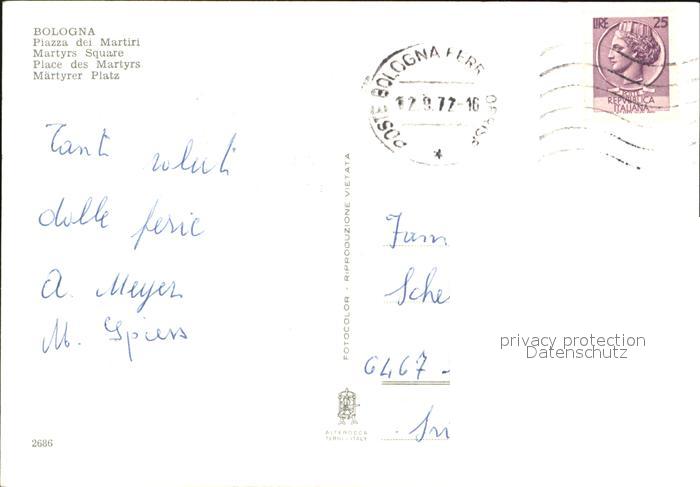 BOLOGNA
Piazza dei Martiri
Martyrs Square
Place des Martyrs
Märtyrer Platz
POSTE BOLOGNA FERR
12.9.72-16
LIRE 25
REPVBBLICA
ITALIANA
Tanti saluti
dalle ferie
A. Meyer
M. Spiess
FOTOCOLOR - RIPRODUZIONE VIETATA
Fam
Sche
6467 -
Sri
privacy protection
Datenschutz
ALTEROCCA
TERNI - ITALY
2686